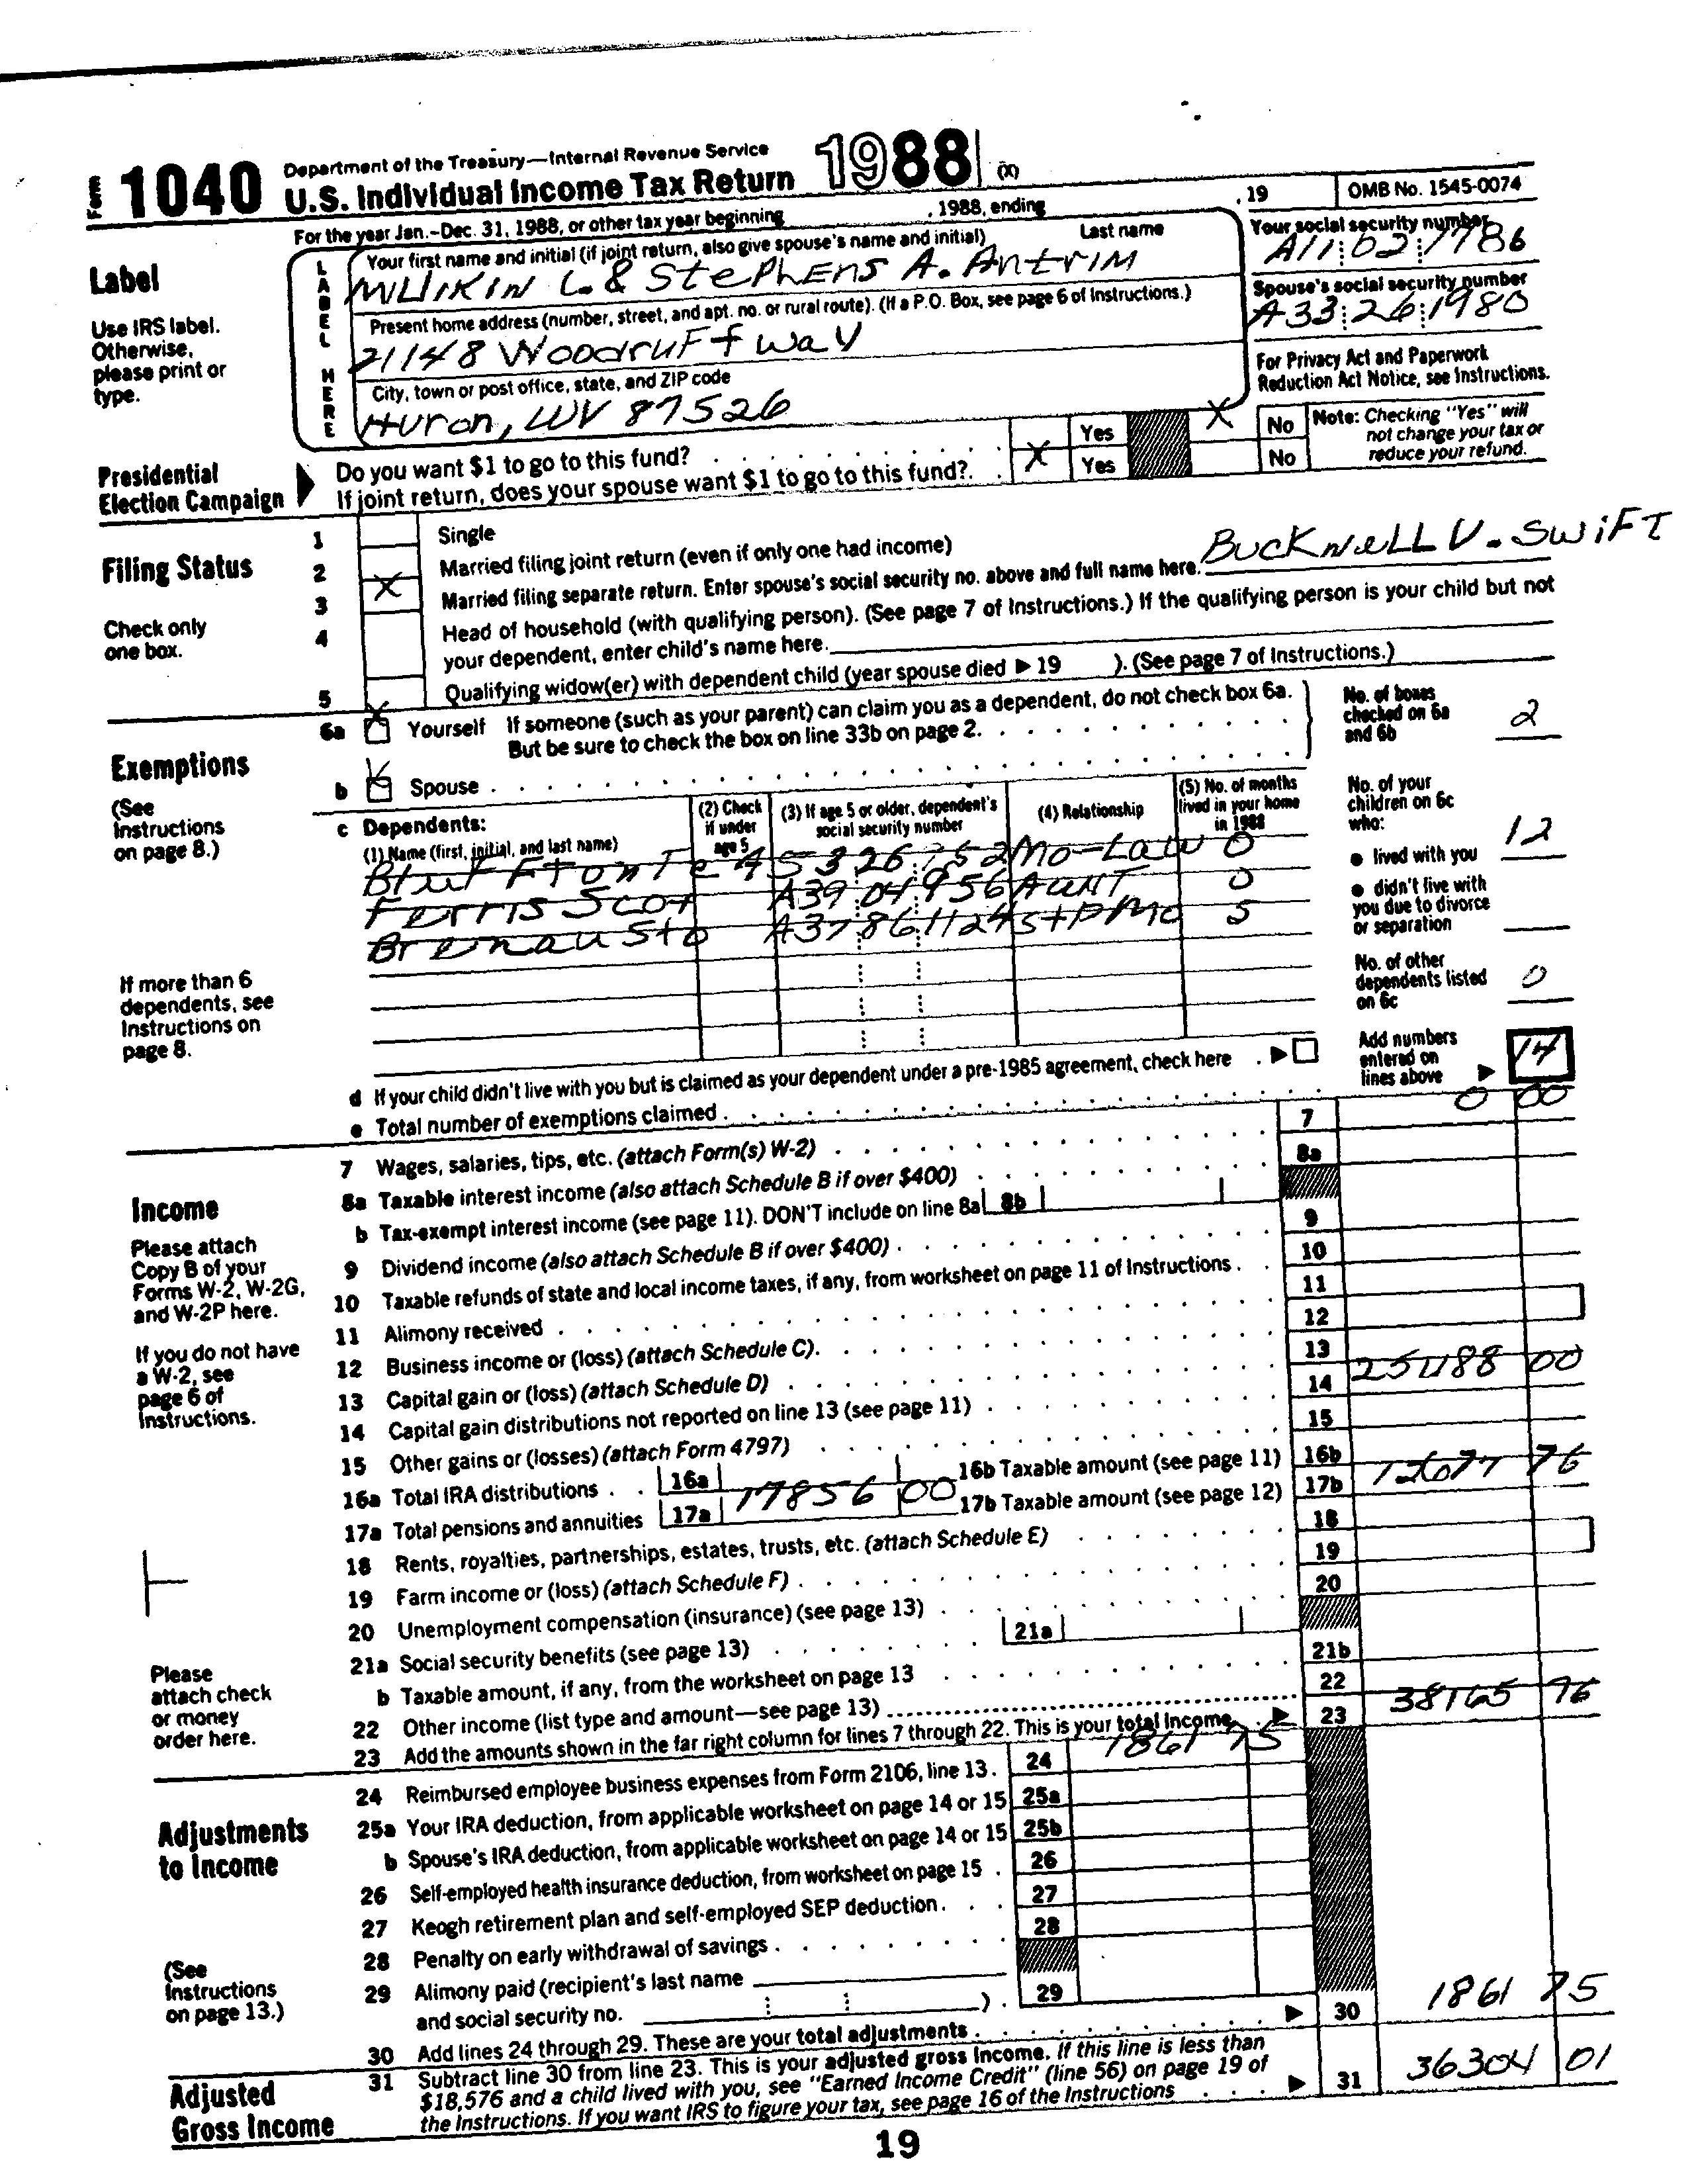 Form 1040 Department of the Treasury—Internal Revenue Service
U.S. Individual Income Tax Return 1988 (X)
For the year Jan.–Dec. 31, 1988, or other tax year beginning , 1988, ending , 19 OMB No. 1545-0074
Label
Use IRS label.
Otherwise,
please print or
type.
LABEL HERE
Your first name and initial (if joint return, also give spouse's name and initial) Last name
Millikin L. & Stephens A. Antrim
Your social security number
A11 02 1786
Present home address (number, street, and apt. no. or rural route). (If a P.O. Box, see page 6 of Instructions.)
21148 Woodruff Way
Spouse's social security number
A33 26 1980
City, town or post office, state, and ZIP code
Huron, WV 87526
For Privacy Act and Paperwork
Reduction Act Notice, see Instructions.
Presidential
Election Campaign
Do you want $1 to go to this fund? Yes X No
If joint return, does your spouse want $1 to go to this fund? X Yes No
Note: Checking "Yes" will
not change your tax or
reduce your refund.
Filing Status
Check only
one box.
1 Single
2 X Married filing joint return (even if only one had income)
3 Married filing separate return. Enter spouse's social security no. above and full name here. Bucknell V. Swift
4 Head of household (with qualifying person). (See page 7 of Instructions.) If the qualifying person is your child but not
your dependent, enter child's name here.
5 Qualifying widow(er) with dependent child (year spouse died ▶ 19 ). (See page 7 of Instructions.)
Exemptions
(See
Instructions
on page 8.)
6a X Yourself If someone (such as your parent) can claim you as a dependent, do not check box 6a.
But be sure to check the box on line 33b on page 2.
b Spouse
No. of boxes
checked on 6a
and 6b 2
c Dependents:
(1) Name (first, initial, and last name)
(2) Check
if under
age 5
(3) If age 5 or older, dependent's
social security number
(4) Relationship
(5) No. of months
lived in your home
in 1988
Mo-Law 0
Ferris Scot A39 04 956 Aunt 0
Brenau Sto A37 86 1124 StpMo 5
No. of your
children on 6c
who:
● lived with you 12
● didn't live with
you due to divorce
or separation
No. of other
dependents listed
on 6c 0
If more than 6
dependents, see
Instructions on
page 8.
d If your child didn't live with you but is claimed as your dependent under a pre-1985 agreement, check here ▶
e Total number of exemptions claimed
Add numbers
entered on
lines above ▶ 14
Income
Please attach
Copy B of your
Forms W-2, W-2G,
and W-2P here.
If you do not have
a W-2, see
page 6 of
Instructions.
Please
attach check
or money
order here.
7 Wages, salaries, tips, etc. (attach Form(s) W-2) 7 0 00
8a Taxable interest income (also attach Schedule B if over $400) 8a
b Tax-exempt interest income (see page 11). DON'T include on line 8a 8b
9 Dividend income (also attach Schedule B if over $400) 9
10 Taxable refunds of state and local income taxes, if any, from worksheet on page 11 of Instructions 10
11 Alimony received 11
12 Business income or (loss) (attach Schedule C) 12
13 Capital gain or (loss) (attach Schedule D) 13
14 Capital gain distributions not reported on line 13 (see page 11) 14 00
15 Other gains or (losses) (attach Form 4797) 15
16a Total IRA distributions 16a 16b Taxable amount (see page 11) 16b
17a Total pensions and annuities 17a 17856 00 17b Taxable amount (see page 12) 17b 12677 76
18 Rents, royalties, partnerships, estates, trusts, etc. (attach Schedule E) 18
19 Farm income or (loss) (attach Schedule F) 19
20 Unemployment compensation (insurance) (see page 13) 20
21a Social security benefits (see page 13) 21a
b Taxable amount, if any, from the worksheet on page 13 21b
22 Other income (list type and amount—see page 13) 22
23 Add the amounts shown in the far right column for lines 7 through 22. This is your total income ▶ 23 38165 76
Adjustments
to Income
(See
Instructions
on page 13.)
24 Reimbursed employee business expenses from Form 2106, line 13. 24 1861 75
25a Your IRA deduction, from applicable worksheet on page 14 or 15 25a
b Spouse's IRA deduction, from applicable worksheet on page 14 or 15 25b
26 Self-employed health insurance deduction, from worksheet on page 15 26
27 Keogh retirement plan and self-employed SEP deduction 27
28 Penalty on early withdrawal of savings 28
29 Alimony paid (recipient's last name
and social security no. ) 29
30 Add lines 24 through 29. These are your total adjustments ▶ 30 1861 75
Adjusted
Gross Income
31 Subtract line 30 from line 23. This is your adjusted gross income. If this line is less than
$18,576 and a child lived with you, see "Earned Income Credit" (line 56) on page 19 of
the Instructions. If you want IRS to figure your tax, see page 16 of the Instructions ▶ 31 36304 01
19